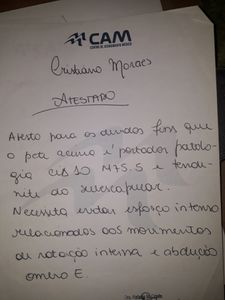 CAM
CENTRO DE ATENDIMENTO MÉDICO
Cristiano Moraes
ATESTADO
Atesto para os devidos fins que
o pcte acima é portador patolo-
gia CID 10 M75.5 e tendi-
nite do subescapular.
Necessita evitar esforço intenso
relacionados aos movimentos
de rotação interna e abdução
ombro E.